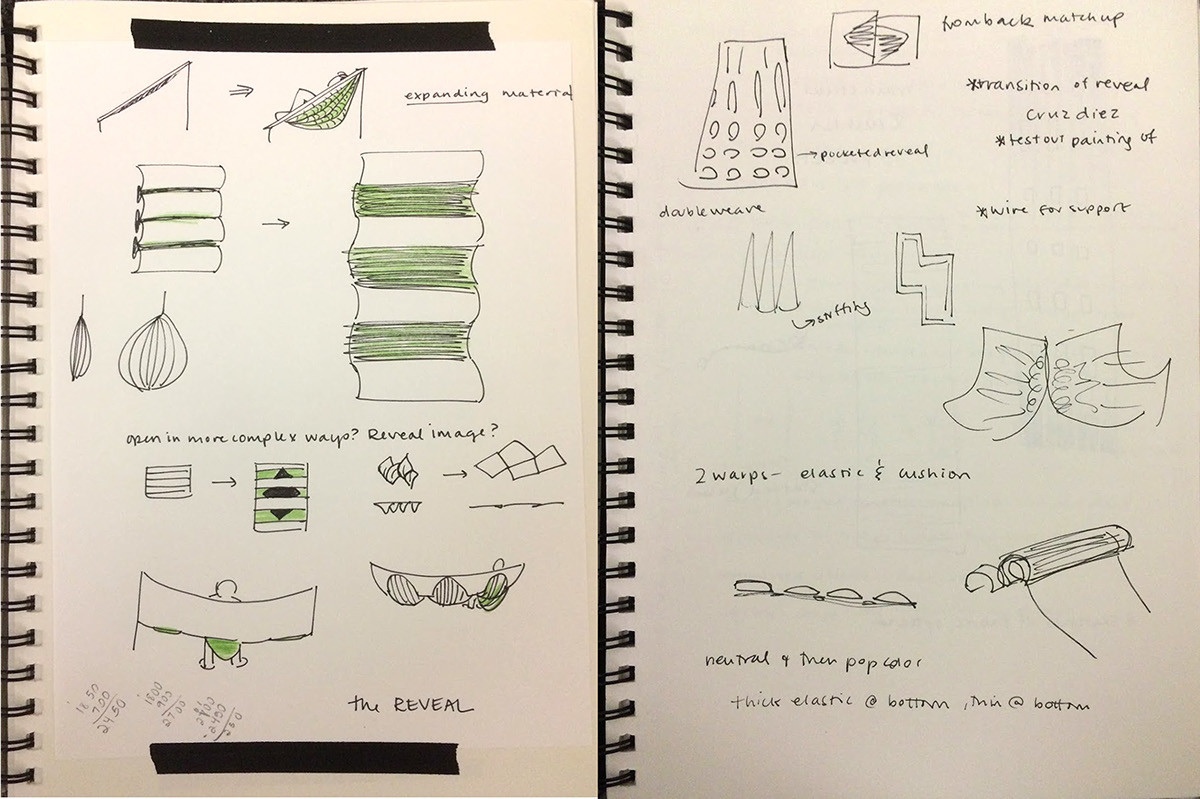 expanding material
open in more complex ways? Reveal image?
the REVEAL
1850
700
2450
1800
900
2700
2700
2450
250
front back matchup
*transition of reveal
cruz diez
*test out painting of
→ pocketed reveal
double weave
*wire for support
stuffing
2 warps - elastic & cushion
neutral & then pop color
thick elastic @ bottom, thin @ bottom